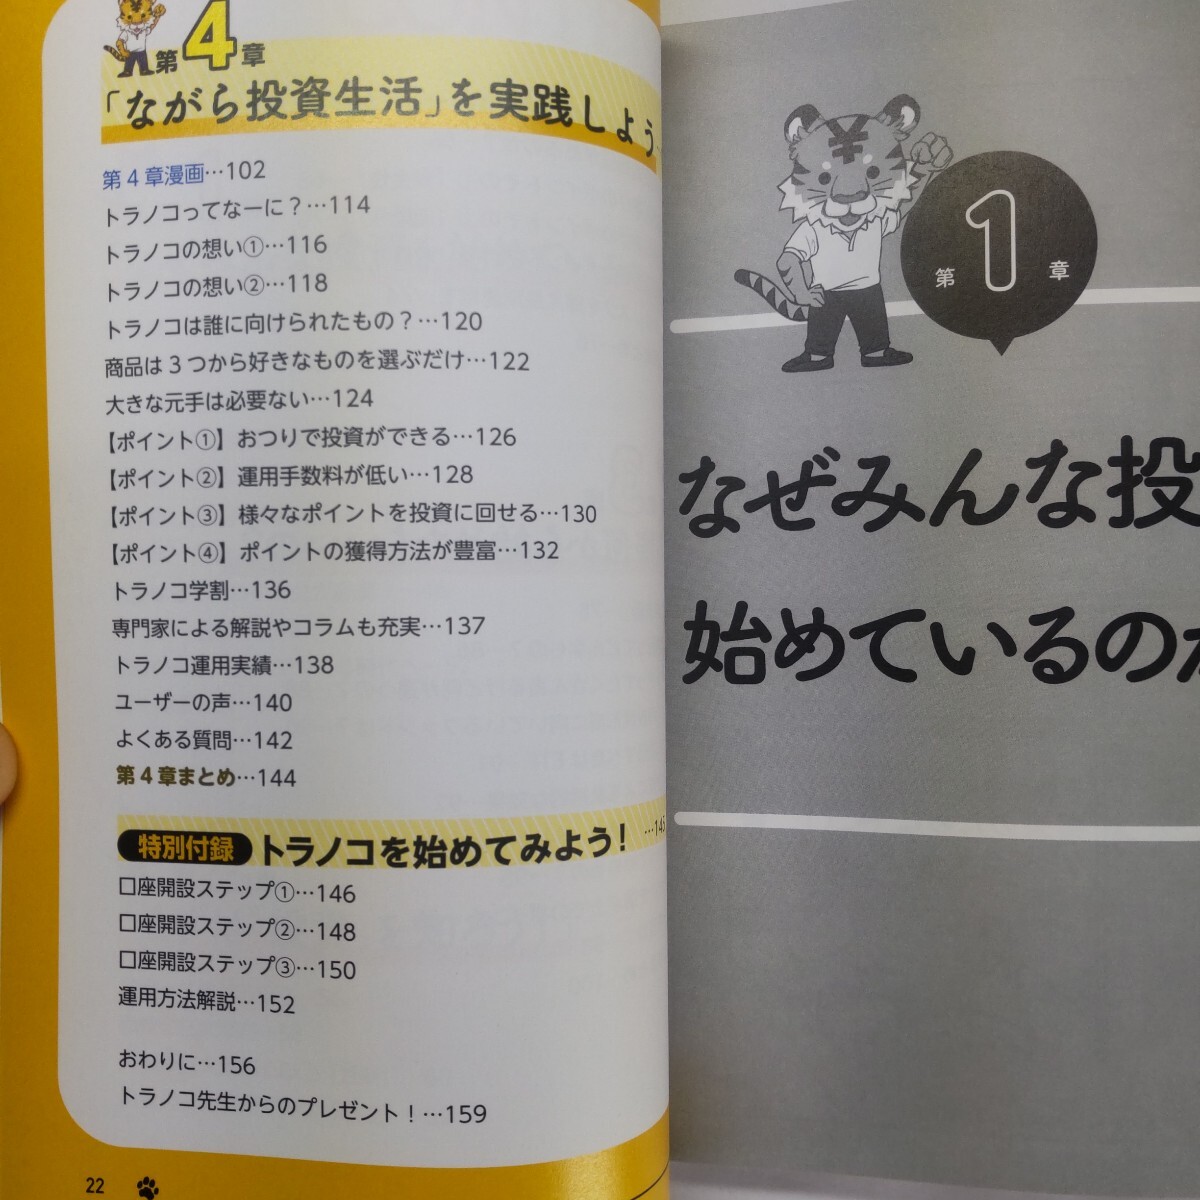 第4章
「ながら投資生活」を実践しよう…
第4章漫画…102
トラノコってなーに？…114
トラノコの想い①…116
トラノコの想い②…118
トラノコは誰に向けられたもの？…120
商品は3つから好きなものを選ぶだけ…122
大きな元手は必要ない…124
【ポイント①】おつりで投資ができる…126
【ポイント②】運用手数料が低い…128
【ポイント③】様々なポイントを投資に回せる…130
【ポイント④】ポイントの獲得方法が豊富…132
トラノコ学割…136
専門家による解説やコラムも充実…137
トラノコ運用実績…138
ユーザーの声…140
よくある質問…142
第4章まとめ…144
特別付録 トラノコを始めてみよう！…145
口座開設ステップ①…146
口座開設ステップ②…148
口座開設ステップ③…150
運用方法解説…152
おわりに…156
トラノコ先生からのプレゼント！…159
22
¥
第1章
なぜみんな投
始めているのか